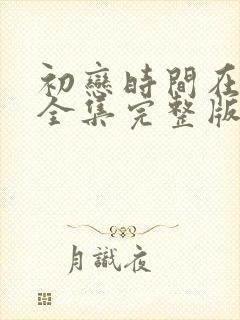 初戀時間在
全集完整版
月識夜